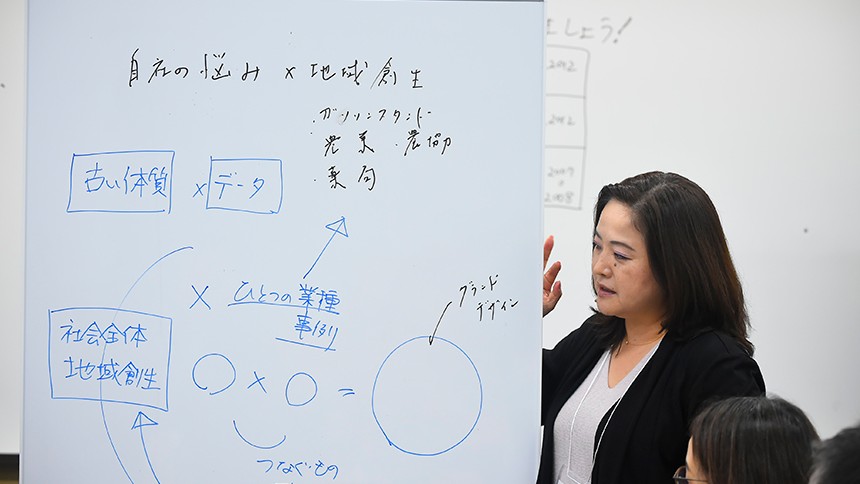 自社の悩み × 地域創生
・ガソリンスタンド
・農業 ・農協
・薬局
古い体質 × データ
× ひとつの業種
事例
社会全体
地域創生
グランド
デザイン
○ × ○ = ○
つなぐもの
ましょう!
2007
2008